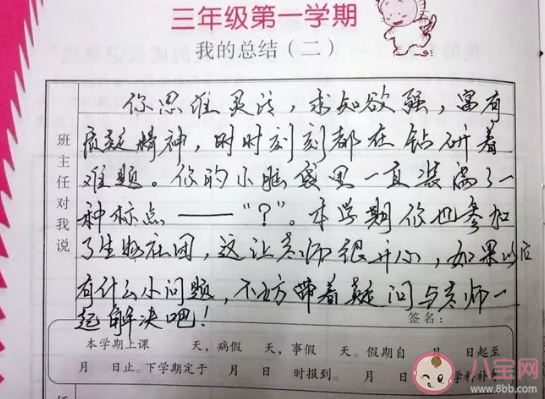 三年级第一学期
我的总结（二）
班主任对我说
你思维灵活，求知欲强，富有
质疑精神，时时刻刻都在钻研着
难题。你的小脑袋里一直装满了一
种标点——“？”。本学期你也参加
了生物社团，这让老师很开心，如果以后
有什么小问题，不妨带着疑问与老师一
起解决吧！
签名：
本学期上课　天，病假　天，事假　天。假期自　月　日起至
月　日止。下学期定于　月　日　时报到。　月　日
八宝网
www.8bb.com